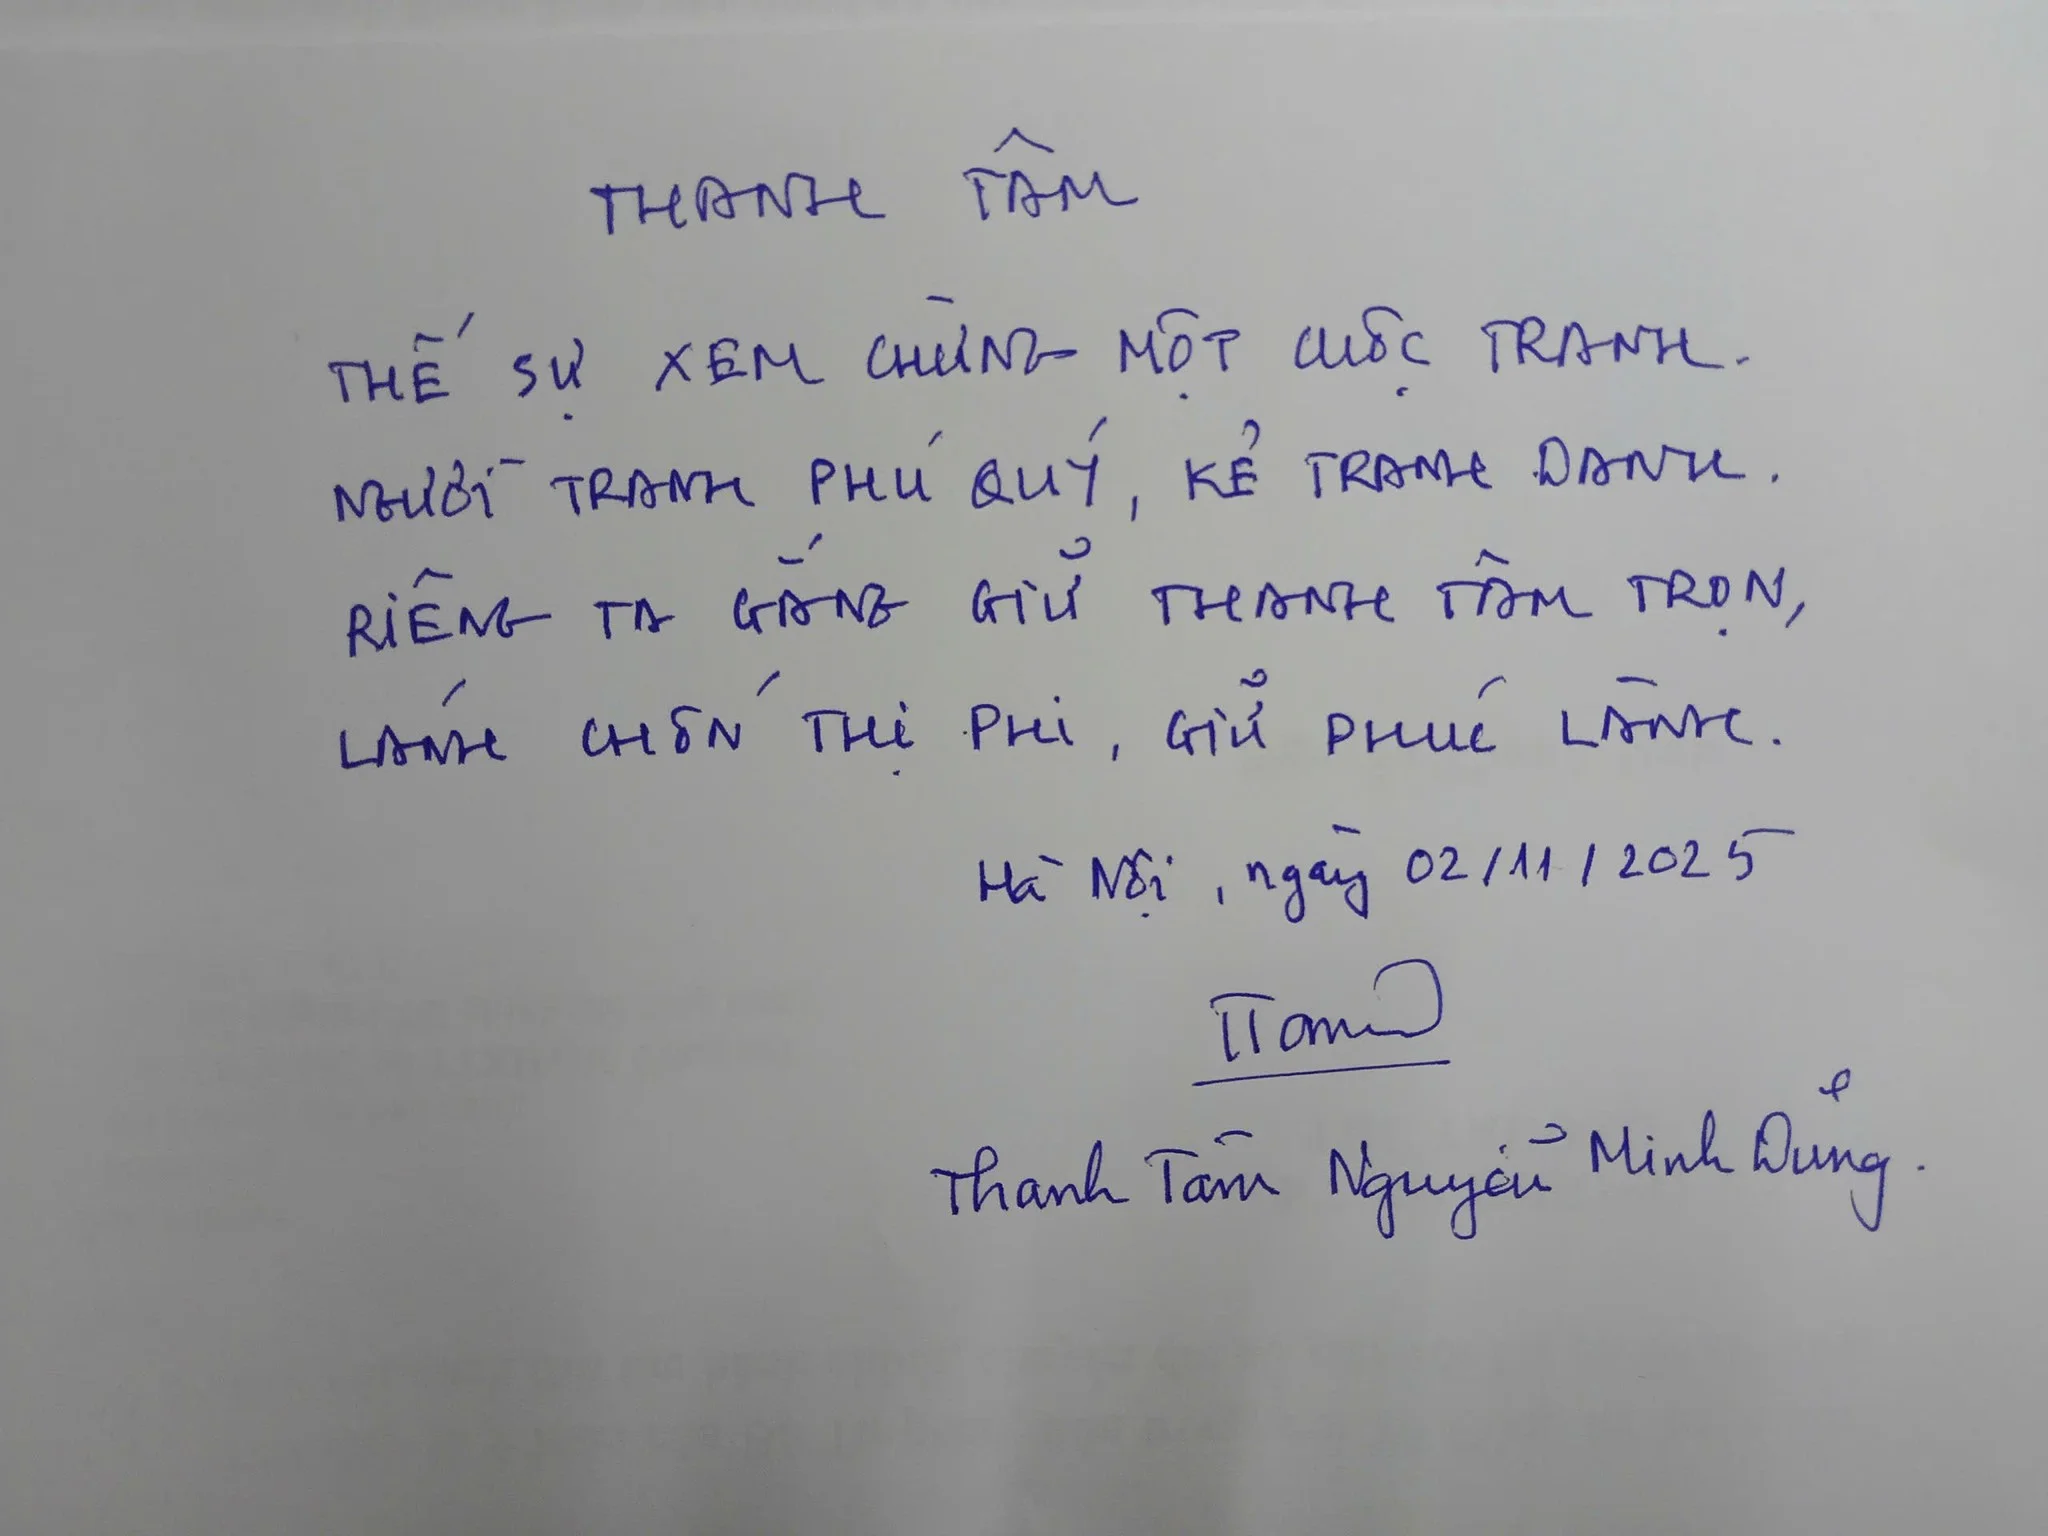 THANH TÂM
THẾ SỰ XEM CHỪNG MỘT CUỘC TRANH.
NGƯỜI TRANH PHÚ QUÝ, KẺ TRANH DANH.
RIÊNG TA GẮNG GIỮ THANH TÂM TRỌN,
LÁNH CHỐN THỊ PHI, GIỮ PHÚC LÀNH.
Hà Nội, ngày 02/11/2025
Thanh Tâm Nguyễn Minh Dũng.